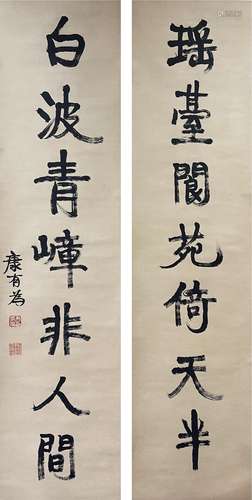 瑶臺閬苑倚天半
白波青嶂非人間
康有為